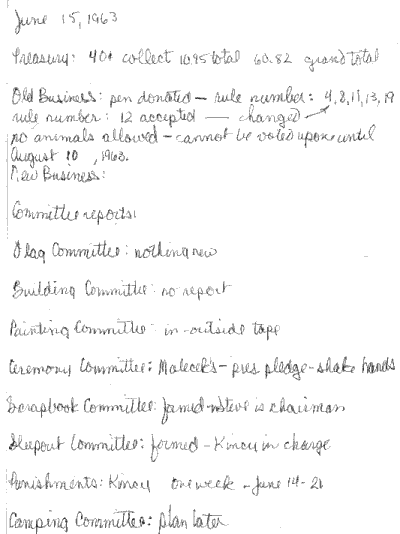 June 15, 1963
Treasury: 40¢ collect 10.95 total 60.82 grand total
Old Business: pen donated — rule number: 4, 8, 11, 13, 19
rule number: 12 accepted — changed
no animals allowed - cannot be voted upon until
August 10, 1963.
New Business:
Committee reports:
Flag Committee: nothing new
Building Committee: no report
Painting Committee: in-outside tape
Ceremony Committee: Malecek's - pres pledge - shake hands
Scrapbook Committee: formed - Steve is chairman
Sleepout Committee: formed - in charge
Punishments: one week - June 14-21
Camping Committee: plan later